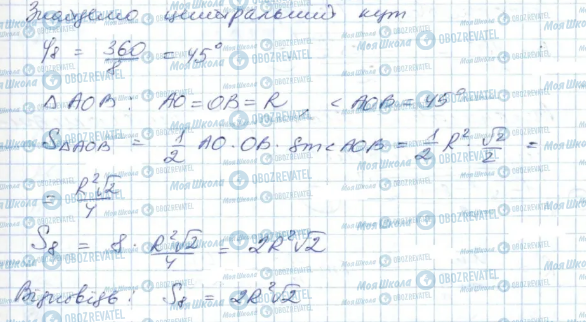 Знайдемо центральний кут
φ₈ = 360/8 = 45°
Δ AOB: AO = OB = R, < AOB = 45°
S△AOB = 1/2 AO · OB · sin < AOB = 1/2 R² · √2/2 =
= R²√2/4
S₈ = 8 · R²√2/4 = 2R²√2
Відповідь: S₈ = 2R²√2
Моя Школа OBOZREVATEL